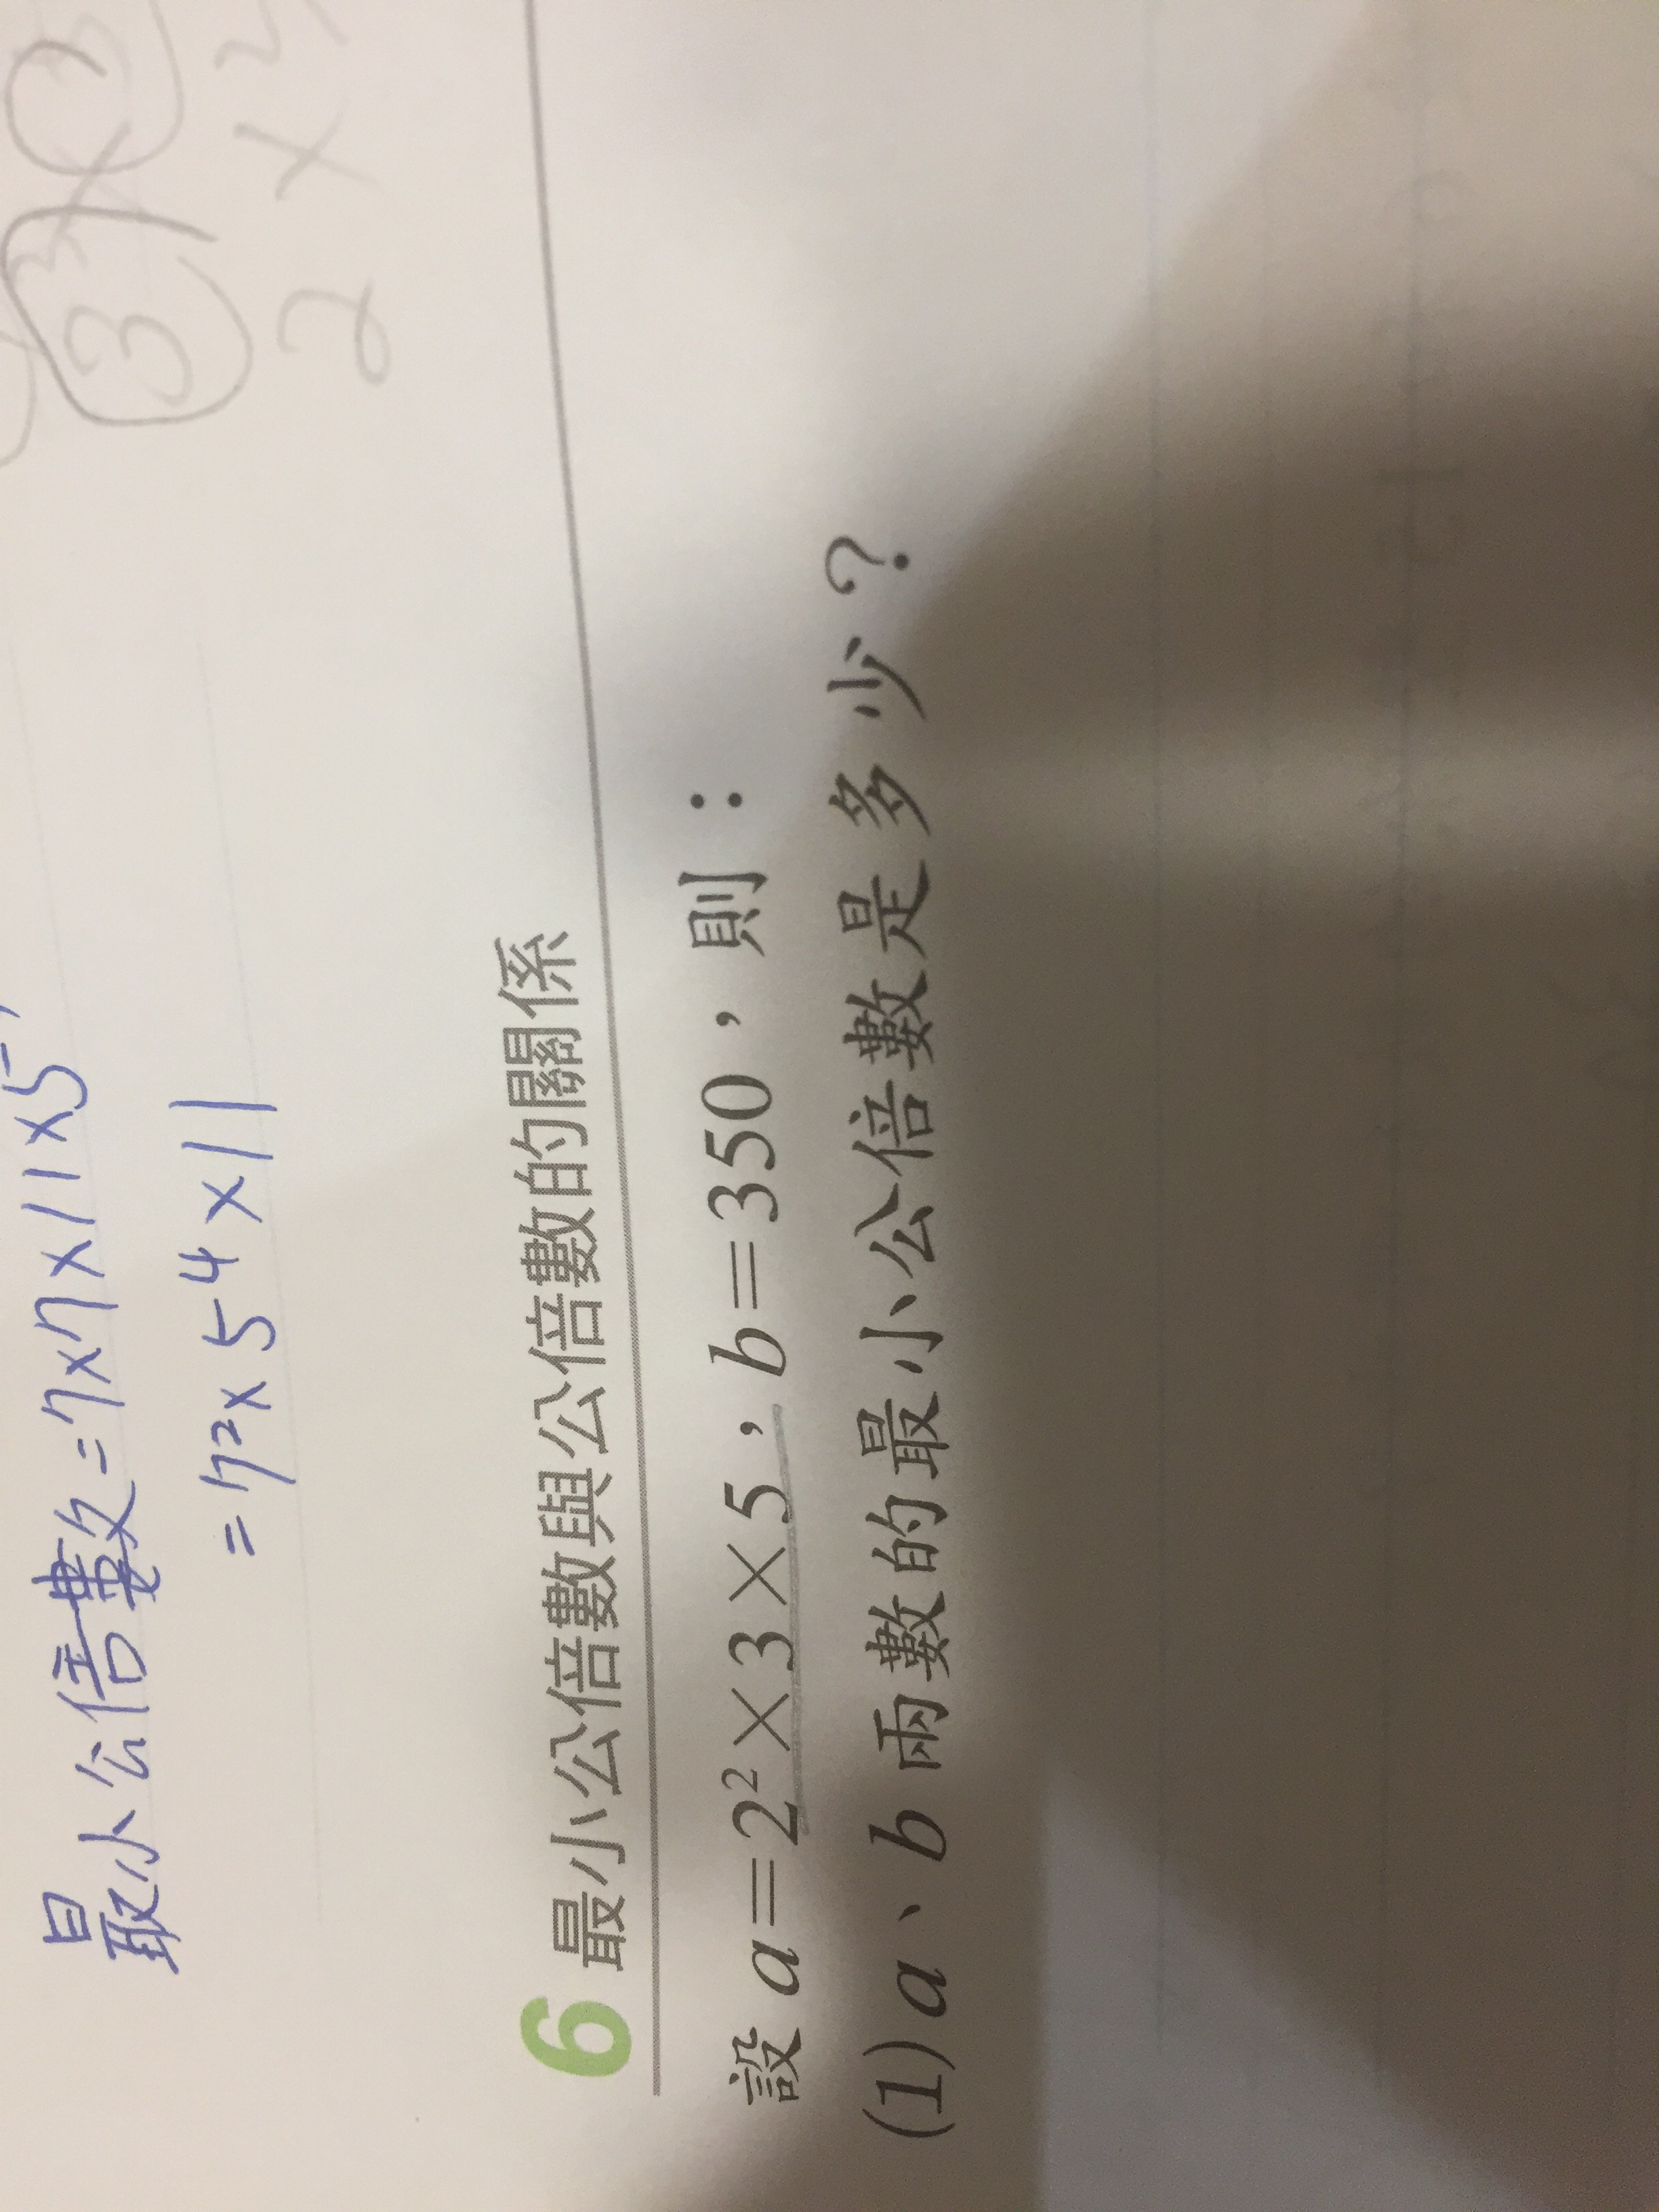 最小公倍數=7×7×11×5
=7²×5⁴×11
3
2×2
6 最小公倍數與公倍數的關係
設 a=2²×3×5,b=350,則:
(1) a、b 兩數的最小公倍數是多少?